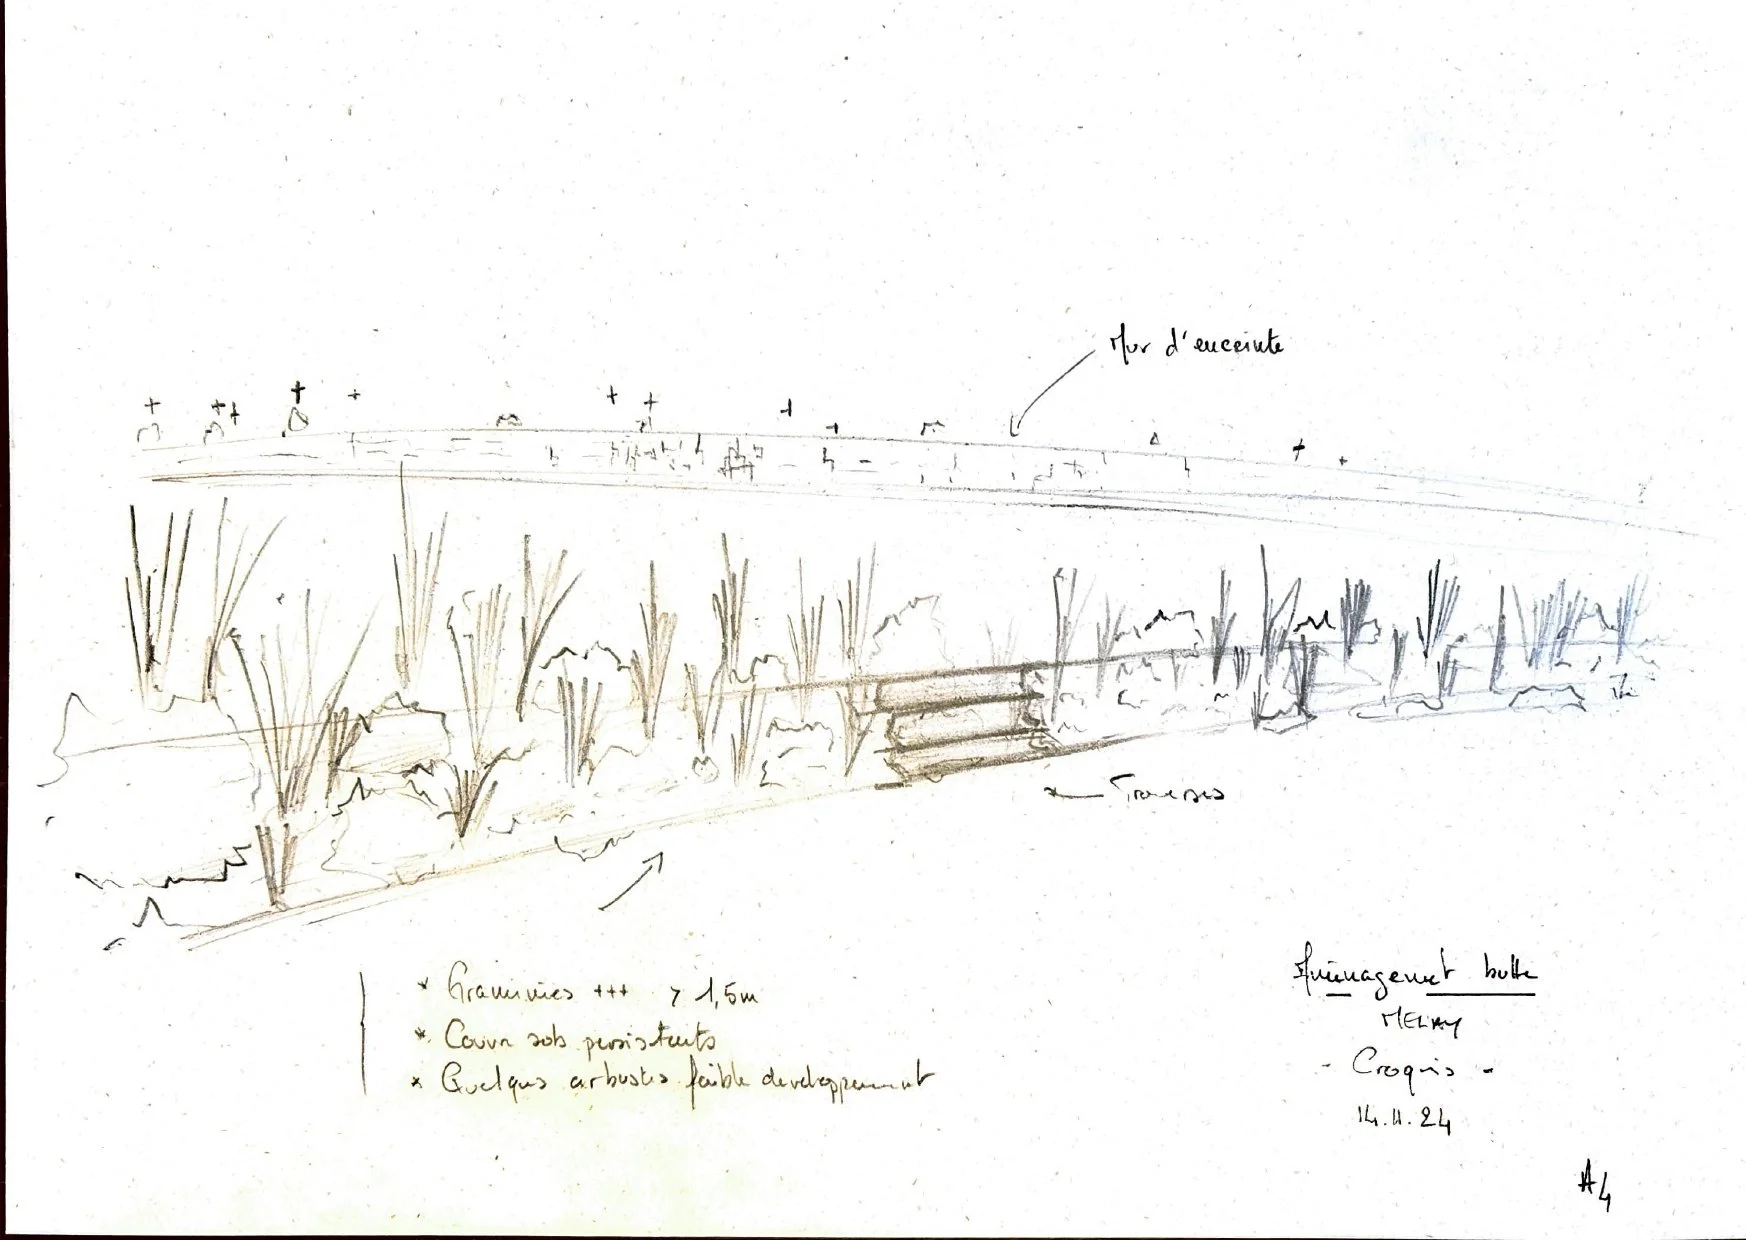 Mur d'enceinte
Traverses
* Graminées +++ > 1,5m
* Couvre sols persistants
* Quelques arbustes faible developpement
Aménagement butte
MELAY
- Croquis -
14.11.24
A4